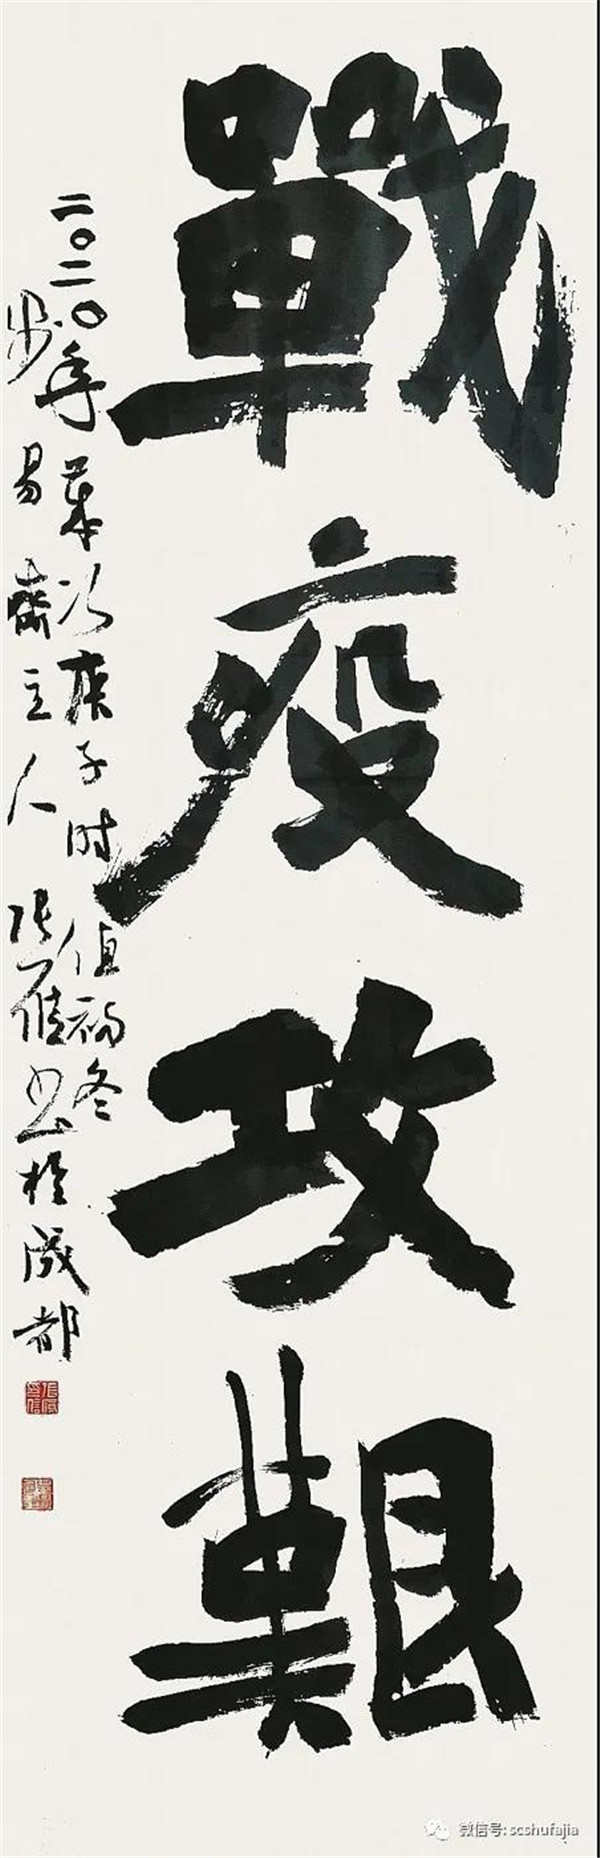 戰疫攻艱
二〇二〇年歲次庚子时值初冬
步易齋主人張應書於成都
微信号: scshufajia